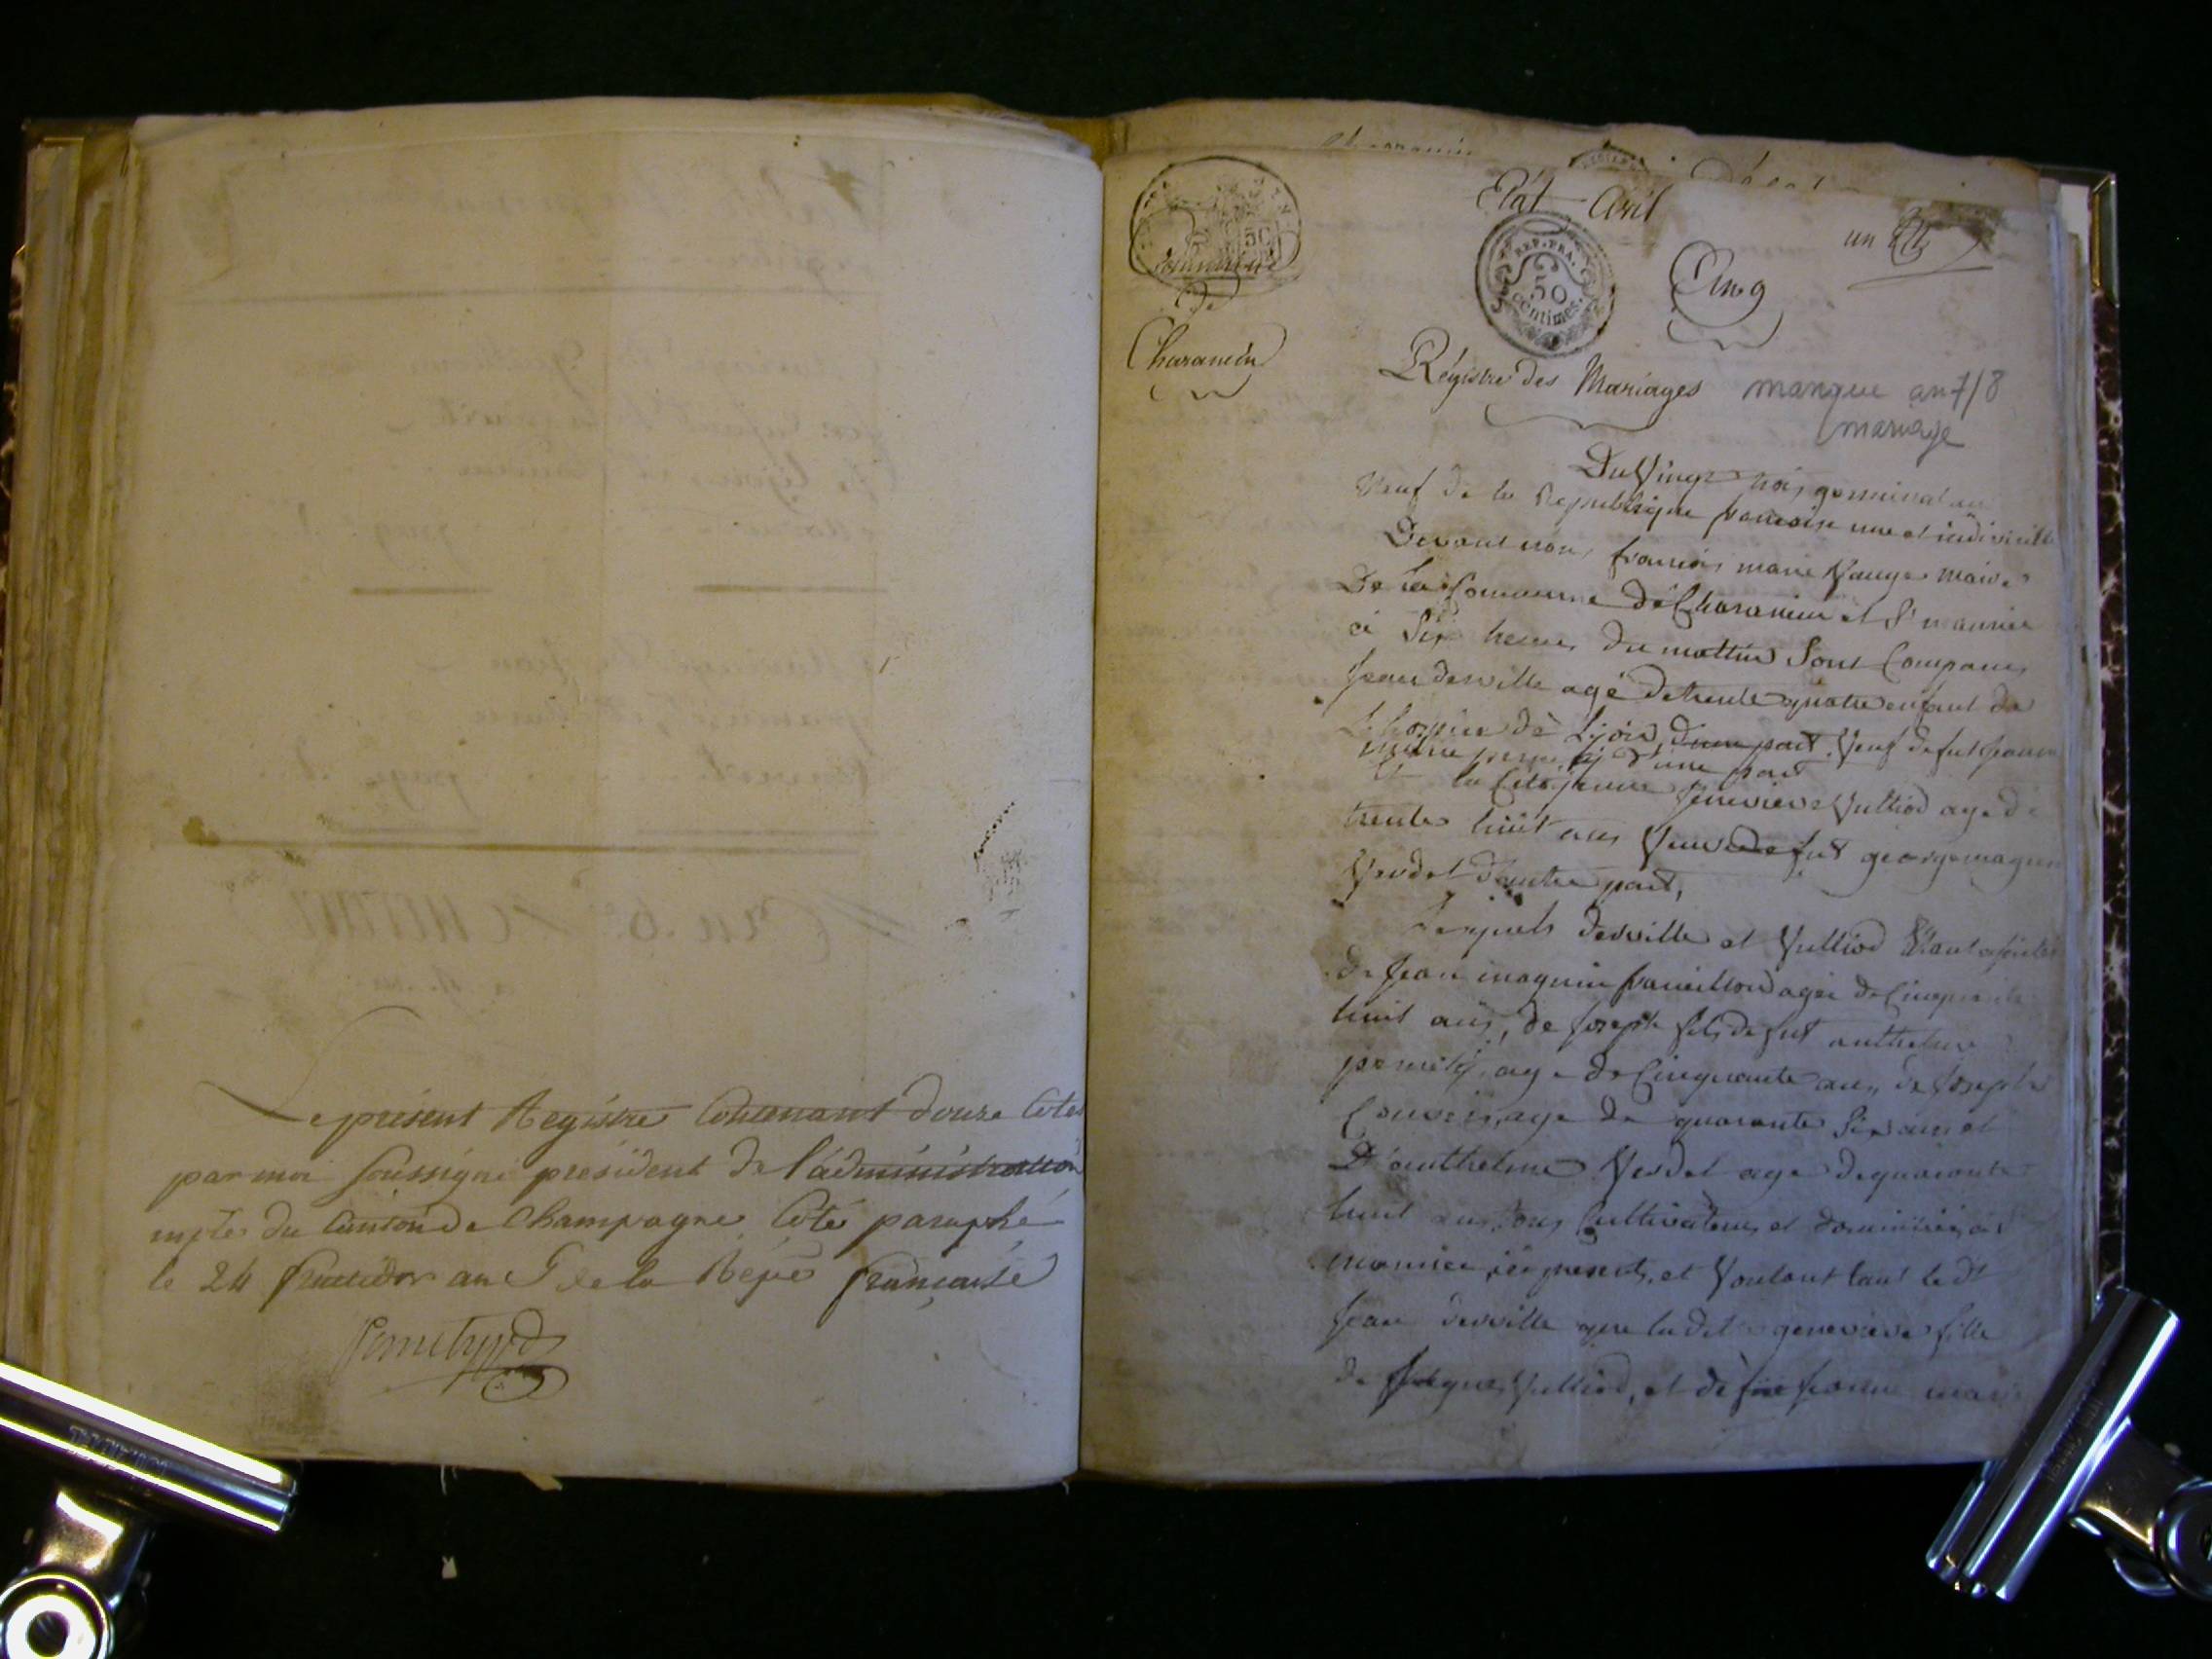 Le présent Registre Contenant douze Cotes
par moi soussigné président de l'administration
mple du Canton de Champagne Coté paraphé
le 24 fructidor an 5 de la Repe française
Etat Civil
un
REP. FRA.
50
centimes
Cinq
Commune
De
Charancin
Régistre des Mariages manque an 7/8
mariage
Du Vingt trois germinal an
Neuf de la Republique francaise une et indivisible
Devant nous françois marie Maire
De La Commune de Charancin et St maurice
à Six heures Du mattin Sont Comparus
Jean derville agé de trente quatre enfant de
L'hospice de Lyon d'une part Veuf de fut Jeanne
d'une part
Et la Citoyenne Genevieve Vulliod age de
trente huit ans Veuve de fut george magnin
Verdet D'autre part,
Lesquels derville et Vulliod Etant assistés
de Jean magnin agée de Cinquante
huit ans, de Joseph fils de fut anthelme
age de Cinquante ans, de Joseph
age de quarante Six ans et
D'anthelme Verdet age de quarante
huit ans tous Cultivateurs et domiciliés à St
maurice, ici presents, et Voulant tant le dt
Jean derville que la dite genevieve fille
de Vulliod, et de feue Jeanne marie